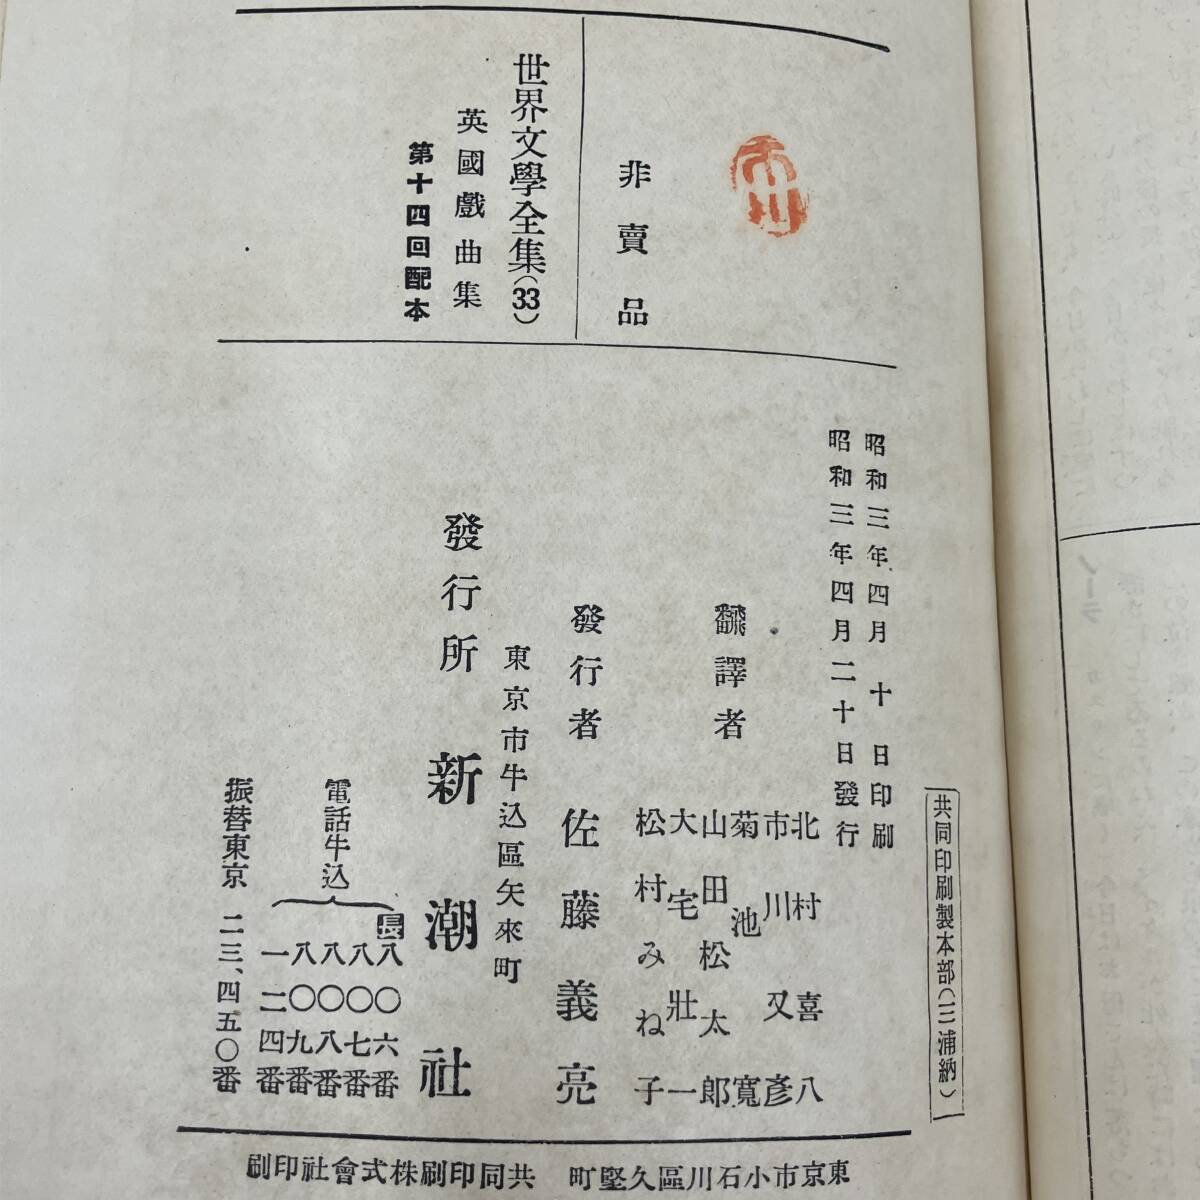 非賣品
世界文學全集(33)
英國戲曲集
第十四回配本
共同印刷製本部(三浦納)
昭和三年四月十日印刷
昭和三年四月二十日發行
飜譯者
北村喜八
市川又彥
菊池寬
山田松太郎
大宅壯一
松村みね子
發行者 佐藤義亮
東京市牛込區矢來町
發行所 新潮社
電話牛込
長八〇六番
八〇七番
八〇八番
八〇九番
一二四番
振替東京 二三、四五〇番
東京市小石川區久堅町 共同印刷株式會社印刷
ノーラ